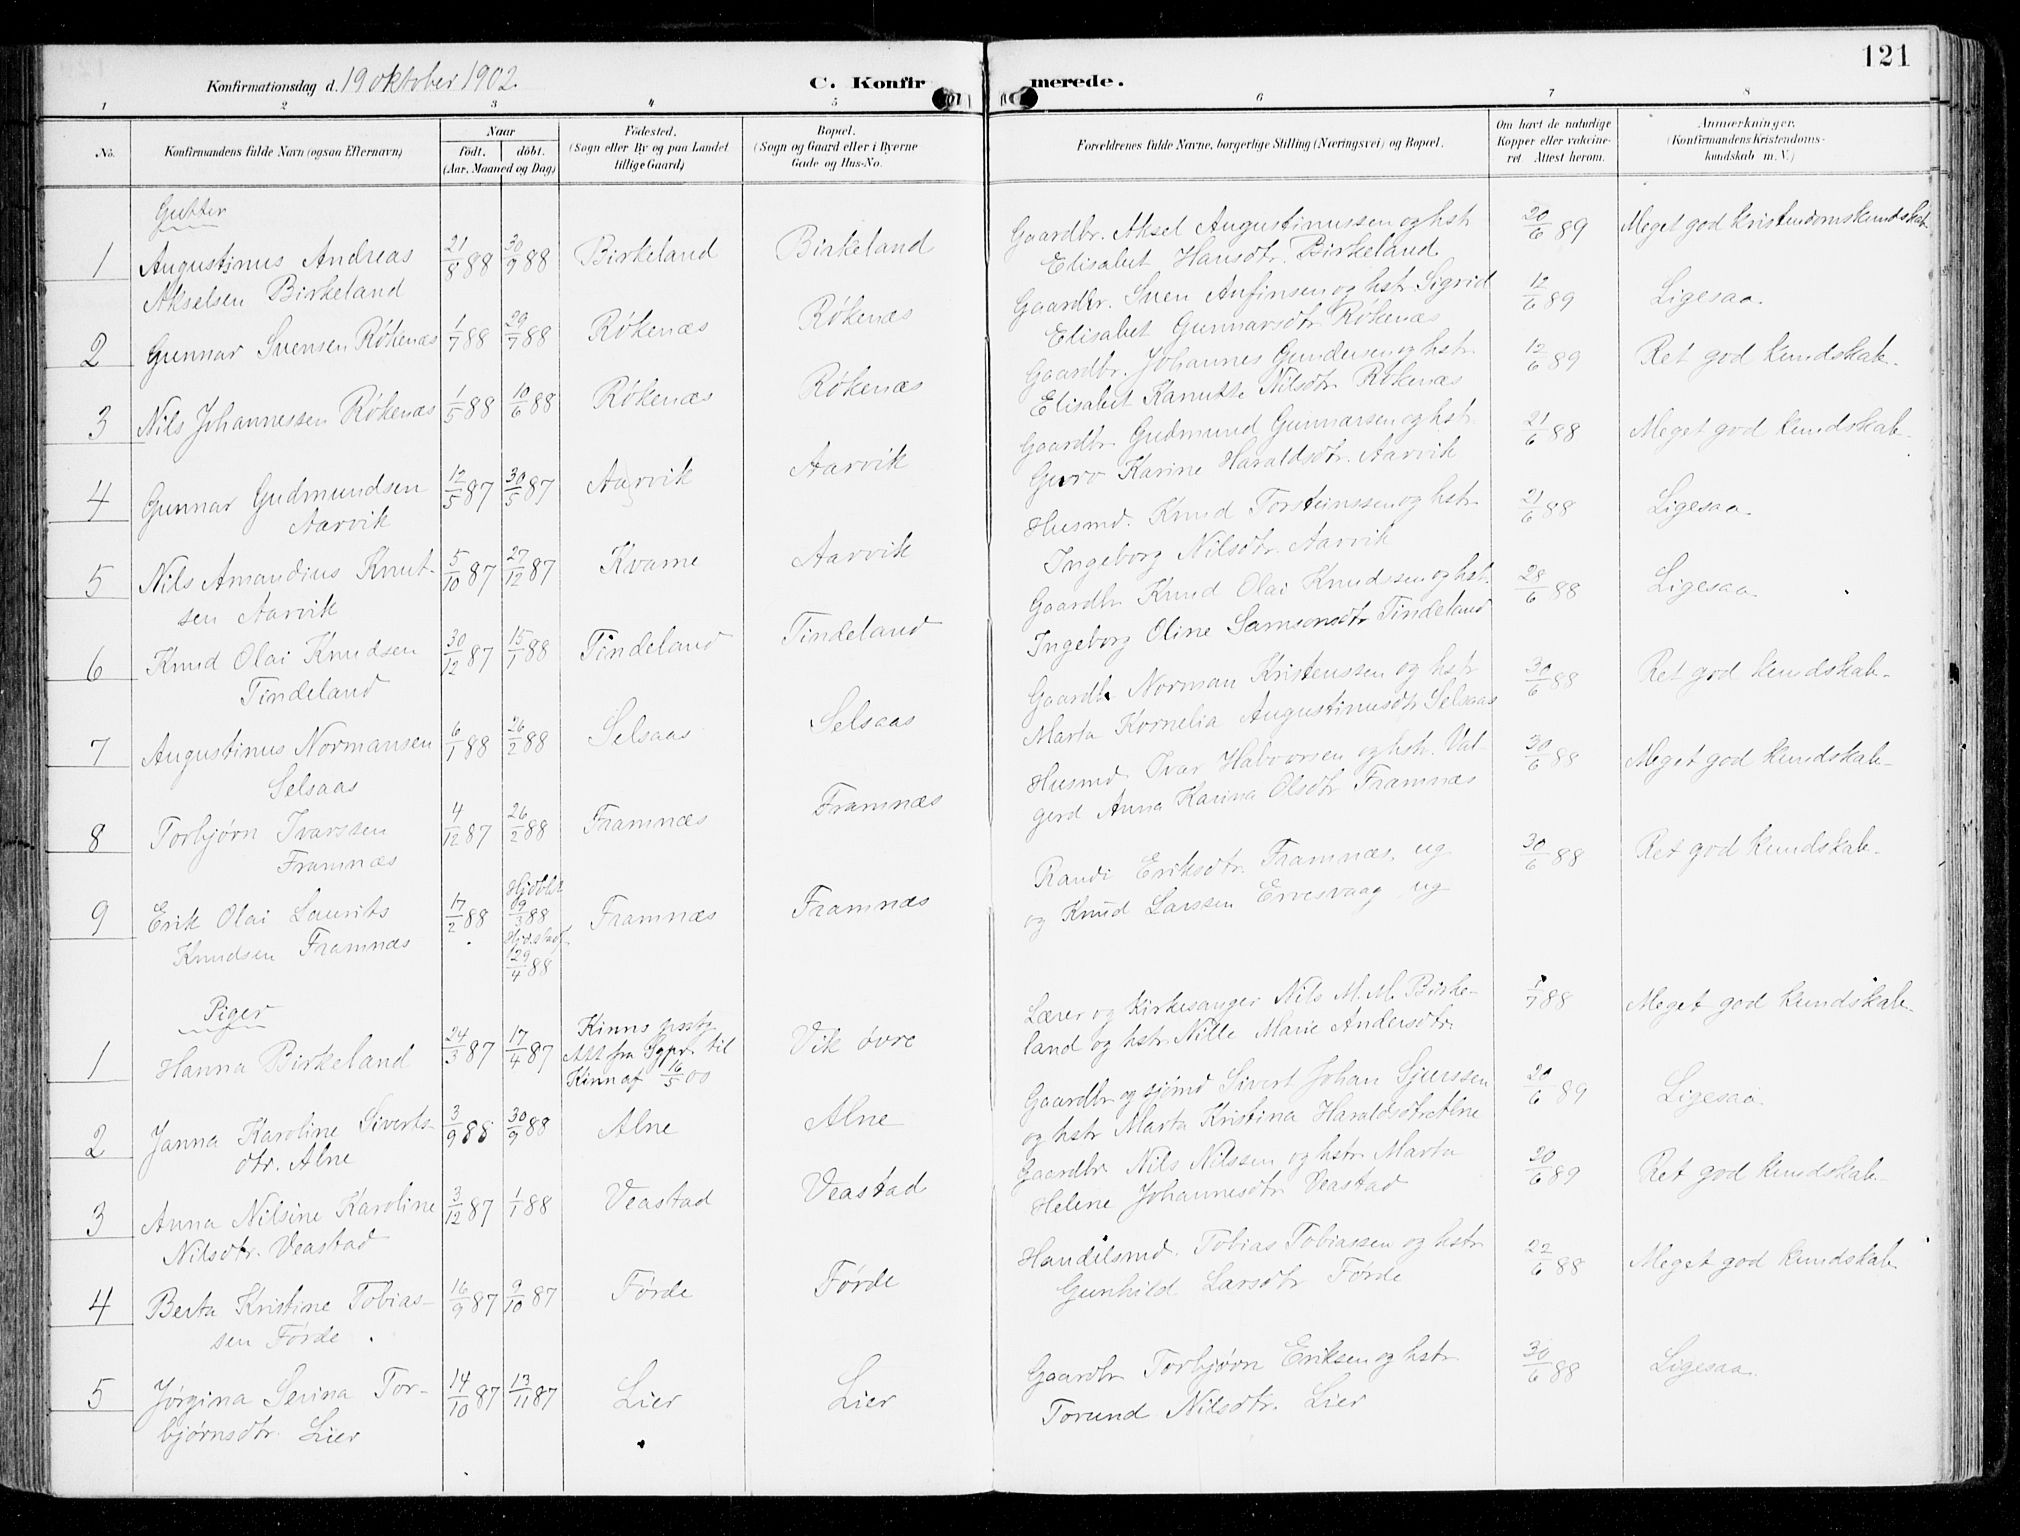 121
Konfirmationsdag d. 19 oktober 1902.
C. Konfirmerede.
1 2 3 4 5 6 7 8
No. Konfirmandens fulde Navn (ogsaa Efternavn) Naar født. døbt. (Aar, Maaned og Dag) Fødested. (Sogn eller By og paa Landet tillige Gaard) Bopæl. (Sogn og Gaard eller i Byerne Gade og Hus-No. Forældrenes fulde Navne, borgerlige Stilling (Næringsvei) og Bopæl. Om havt de naturlige Kopper eller vaccineret. Attest herom. Anmærkninger. (Konfirmandens Kristendomskundskab m. V.)
Gutter
1 Augustinus Andreas 21/8 88 30/9 88 Birkeland Birkeland Gaardbr. Aksel Augustinussen og hstr 20/6 89 Meget god kristendomskundskab
Akselsen Birkeland Elisabet Hansdtr. Birkeland
2 Gunnar Svensen Røkenæs 1/7 88 29/7 88 Røkenæs Røkenæs Gaardbr. Sven Anfinsen og hstr Sigrid 12/6 89 Ligesaa.
Elisabet Gunnarsdtr. Røkenæs
3 Nils Johannessen Røkenæs 1/5 88 10/6 88 Røkenæs Røkenæs Gaardbr. Johannes Gundersen og hstr 12/6 89 Ret god kundskab.
Elisabet Kanutte Nilsdtr Røkenæs
4 Gunnar Gudmundsen 12/5 87 30/5 87 Aarvik Aarvik Gaardbr Gudmund Gunnarsen og hstr. 21/6 88 Meget god kundskab.
Aarvik Guro Karine Haraldsdtr. Aarvik
5 Nils Amandius Knut- 5/10 87 27/12 87 Kvame Aarvik Husmd. Knud Torsteinssen og hstr 21/6 88 Ligesaa.
sen Aarvik Ingeborg Nilsdtr. Aarvik
6 Knud Olai Knudsen 30/12 87 15/1 88 Tindeland Tindeland Gaardbr Knud Olai Knudssen og hstr. 28/6 88 Ligesaa
Tindeland Ingeborg Oline Samsonsdtr Tindeland
7 Augustinus Normansen 6/1 88 26/2 88 Selsaas Selsaas Gaardbr Norman Kristenssen og hstr 30/6 88 Ret god kundskab.
Selsaas Marta Kornelia Augustinusdtr Selsaas
8 Torbjørn Ivarssen 4/12 87 26/2 88 Framnæs Framnæs Husmd. Ivar Halvorsen og hstr. Val- 30/6 88 Meget god kundskab.
Framnæs gerd Anna Karina Olsdtr Framnæs
9 Erik Olai Laurits 17/2 88 Hjdøbt 9/3 88 Framnæs Framnæs Randi Eriksdtr. Framnæs, ug 30/6 88 Ret god kundskab.
Knudsen Framnæs 29/4 88 og Knud Larssen Ervesvaag, ug
Piger
1 Hanna Birkeland 24/3 87 17/4 87 Kinns prstg Vik øvre Lærer og Kirkesanger Nils M. M. Birke- 1/7 88 Meget god kundskab.
Att fra Sgpr. til land og hstr. Nille Marie Andersdtr.
Kinn af 16/5 00
2 Janna Karoline Siverts- 3/9 88 30/9 88 Alne Alne Gaardbr og sjømd Sivert Johan Sjurssen 20/6 89 Ligesaa
dtr. Alne og hstr Marta Kristina Haraldsdtr Alne
3 Anna Nilsine Karoline 3/12 87 1/1 88 Veastad Veastad Gaardbr Nils Nilssen og hstr. Marta 20/6 89 Ret god kundskab.
Nilsdtr. Veastad Helene Johannesdtr Veastad
4 Berta Kristine Tobias- 16/9 87 9/10 87 Førde Førde Handelsmd. Tobias Tobiassen og hstr 22/6 88 Meget god kundskab
sen Førde. Gunhild Larsdtr Førde
5 Jørgina Serina Tor- 14/10 87 13/11 87 Lier Lier Gaardbr Torbjørn Eriksen og hstr 30/6 88 Ligesaa.
bjørnsdtr. Lier Torund Nilsdtr. Lier